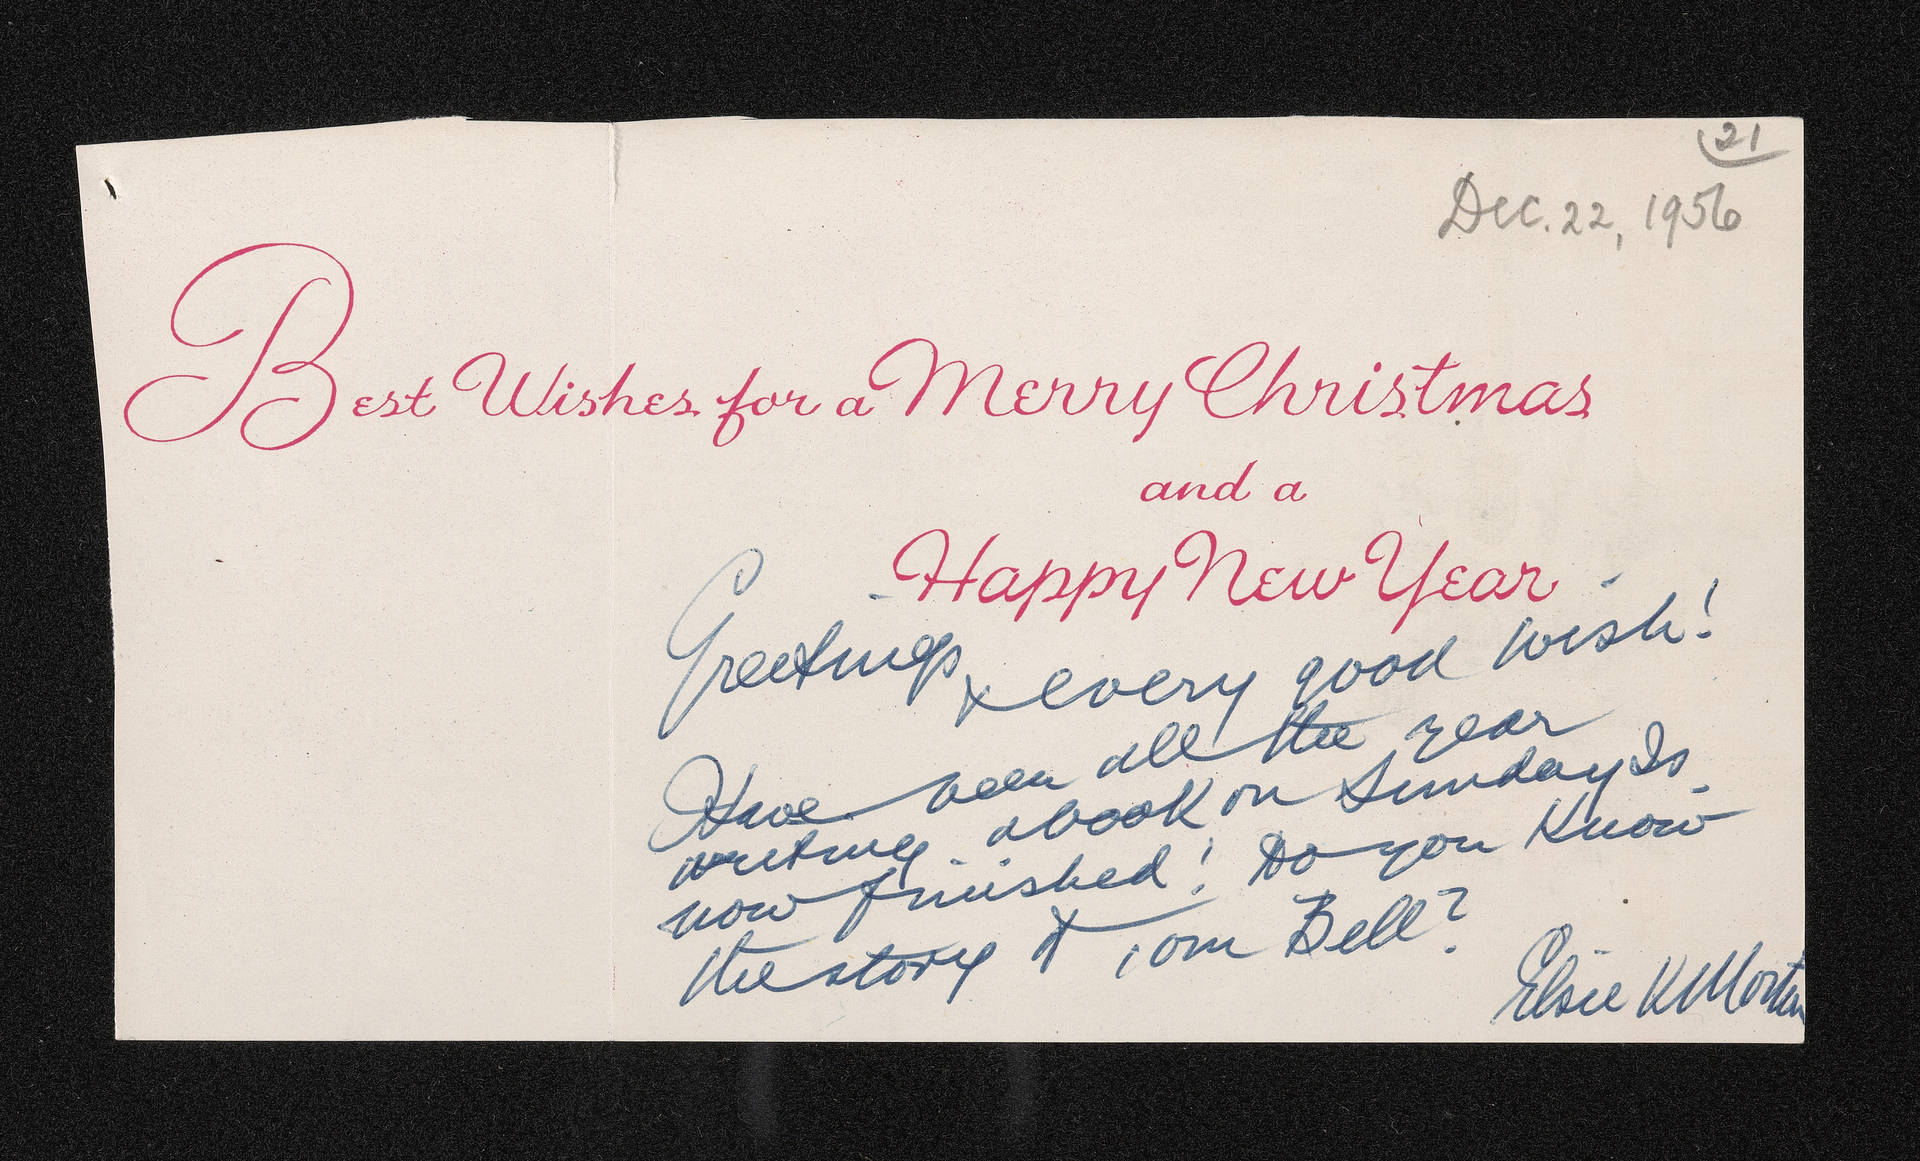 21
Dec. 22, 1956
Best Wishes for a Merry Christmas
and a
Happy New Year
Greetings & every good wish!
Have been all the year
writing a book on Sunday Is.
now finished! Do you know
the story of Tom Bell?
Elsie K Morton